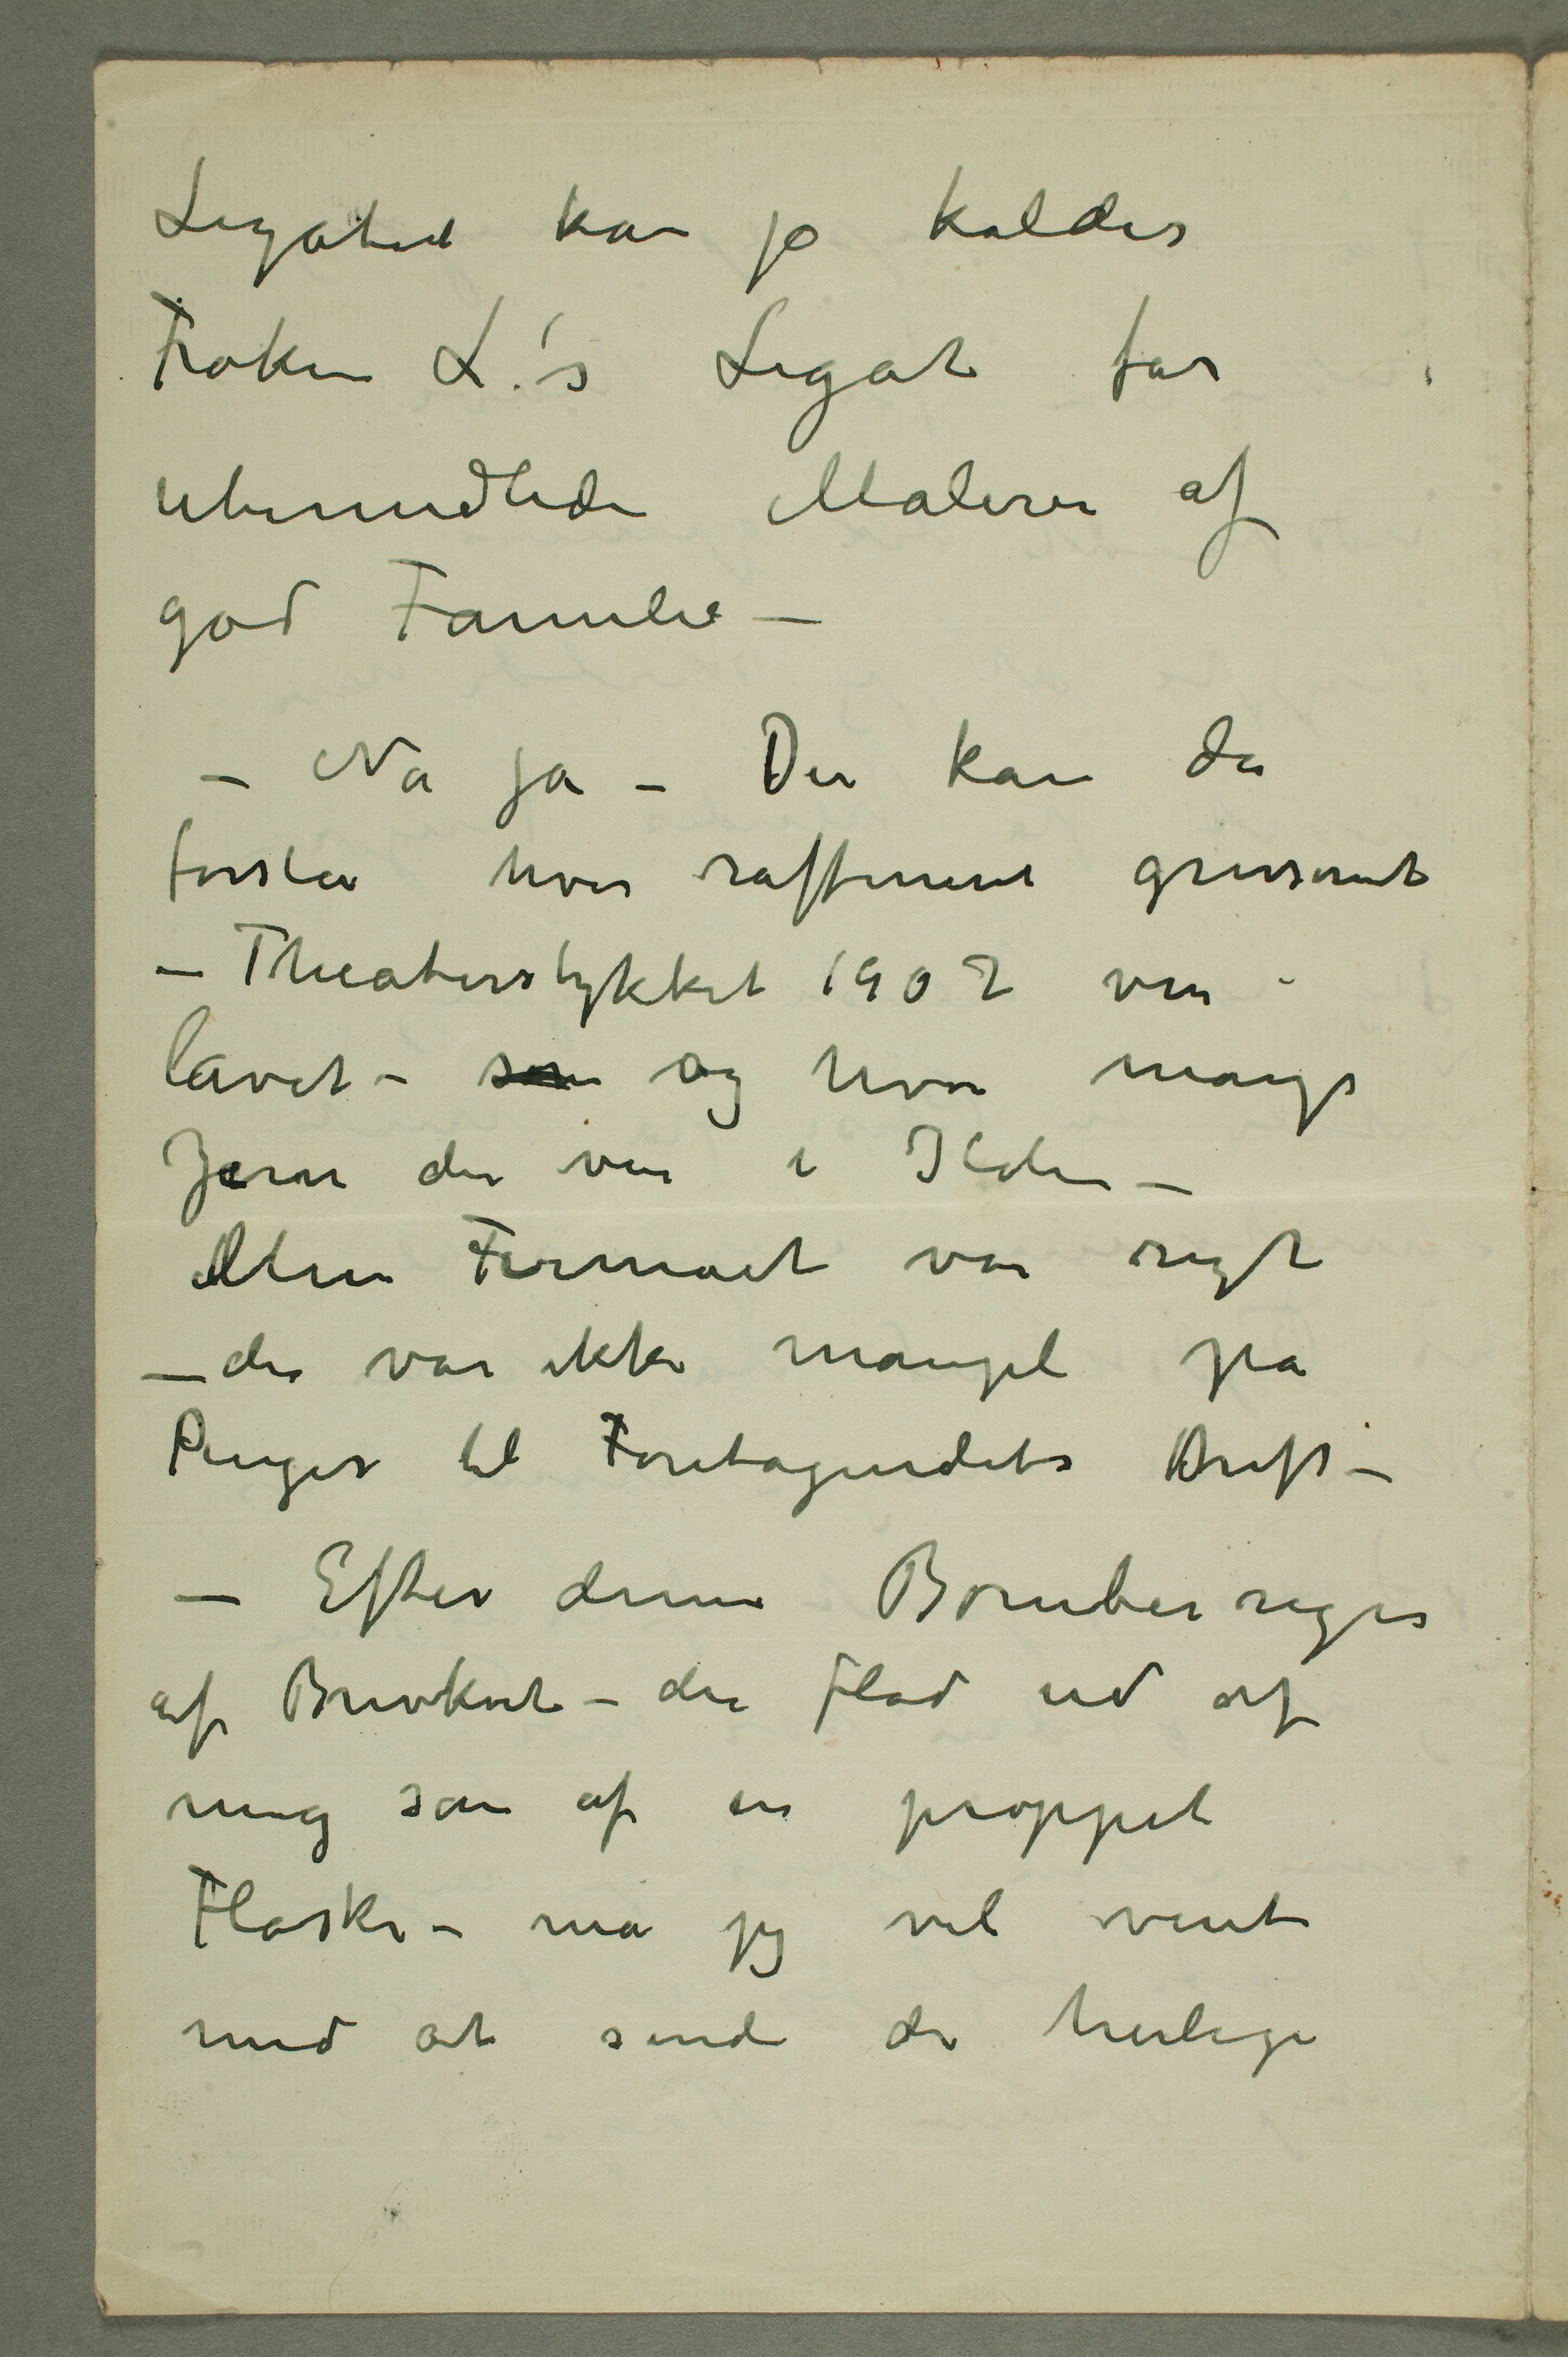 Legatet kan jo kaldes
Frøken L.'s Legat for
ubemidlede Malere af
god Familie –
– Nå ja – Du kan da
forstå hvor raffineret grusomt
– Theaterstykket 1902 var
lavet – som og hvor mange
Jern der var i Ilden –
Men Firmaet var rigt
– der var ikke mangel på
Penger til Foretagendets Drift –
– Efter denne Bombereges
af Brevkort – der flød ud af
mig som af en proppet
Flaske – må jeg vel vente
med at sende de herlige